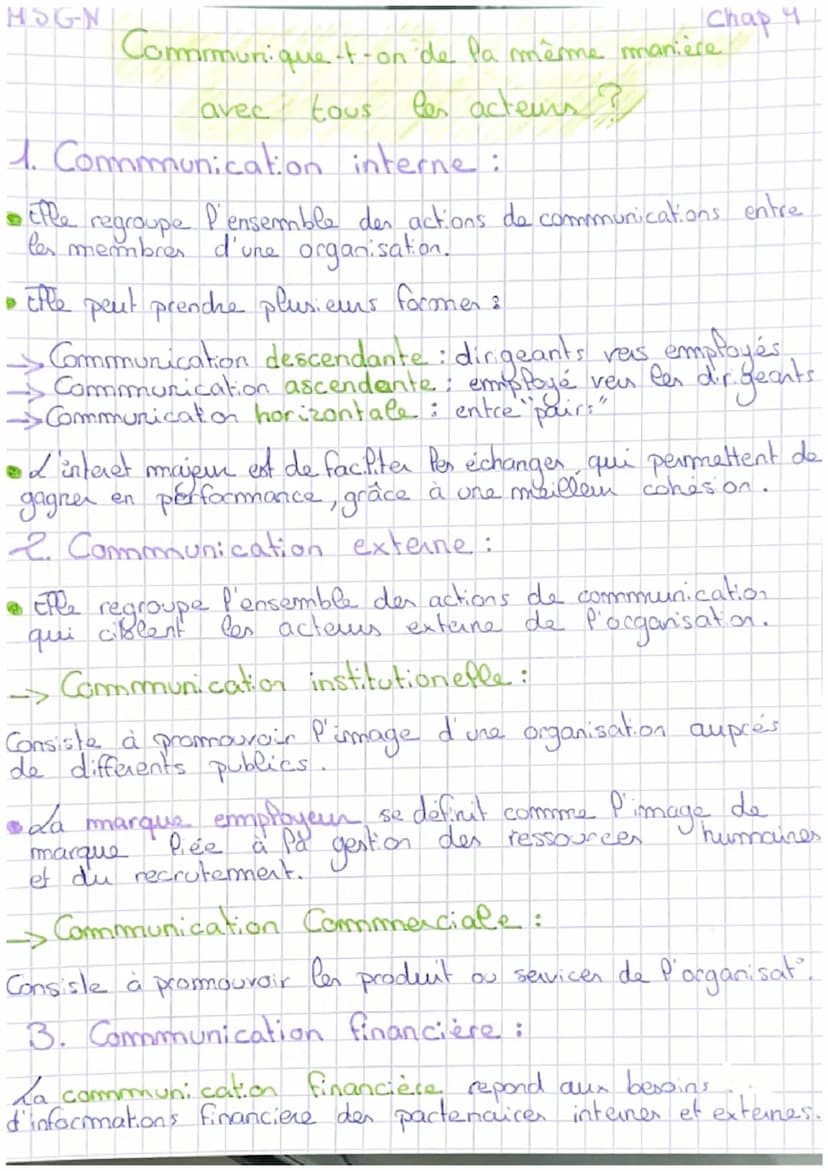 MSGN Chap 4
Communique-t-on de la même manière
avec tous les acteurs ?
1. Communication interne :
• Elle regroupe l'ensemble des actions de communications entre
les membres d'une organisation.
• Elle peut prendre plusieurs formes :
-> Communication descendante : dirigeants vers employés
-> Communication ascendante : employé vers les dirigeants
-> Communication horizontale : entre "pairs"
• L'interet majeur est de faciliter les échanges, qui permettent de
gagner en performance, grâce à une meilleur cohésion.
2. Communication externe :
• Elle regroupe l'ensemble des actions de communication
qui ciblent les acteurs externe de l'organisation.
-> Communication institutionelle :
Consiste à promouvoir l'image d'une organisation auprés
de differents publics.
• La marque employeur se définit comme l'image de
marque liée à la gestion des ressources humaines
et du recrutement.
-> Communication Commerciale :
Consiste à promouvoir les produit ou services de l'organisat°.
3. Communication financière :
La communication financière repond aux besoins
d'informations financiere des partenaires internes et externes.